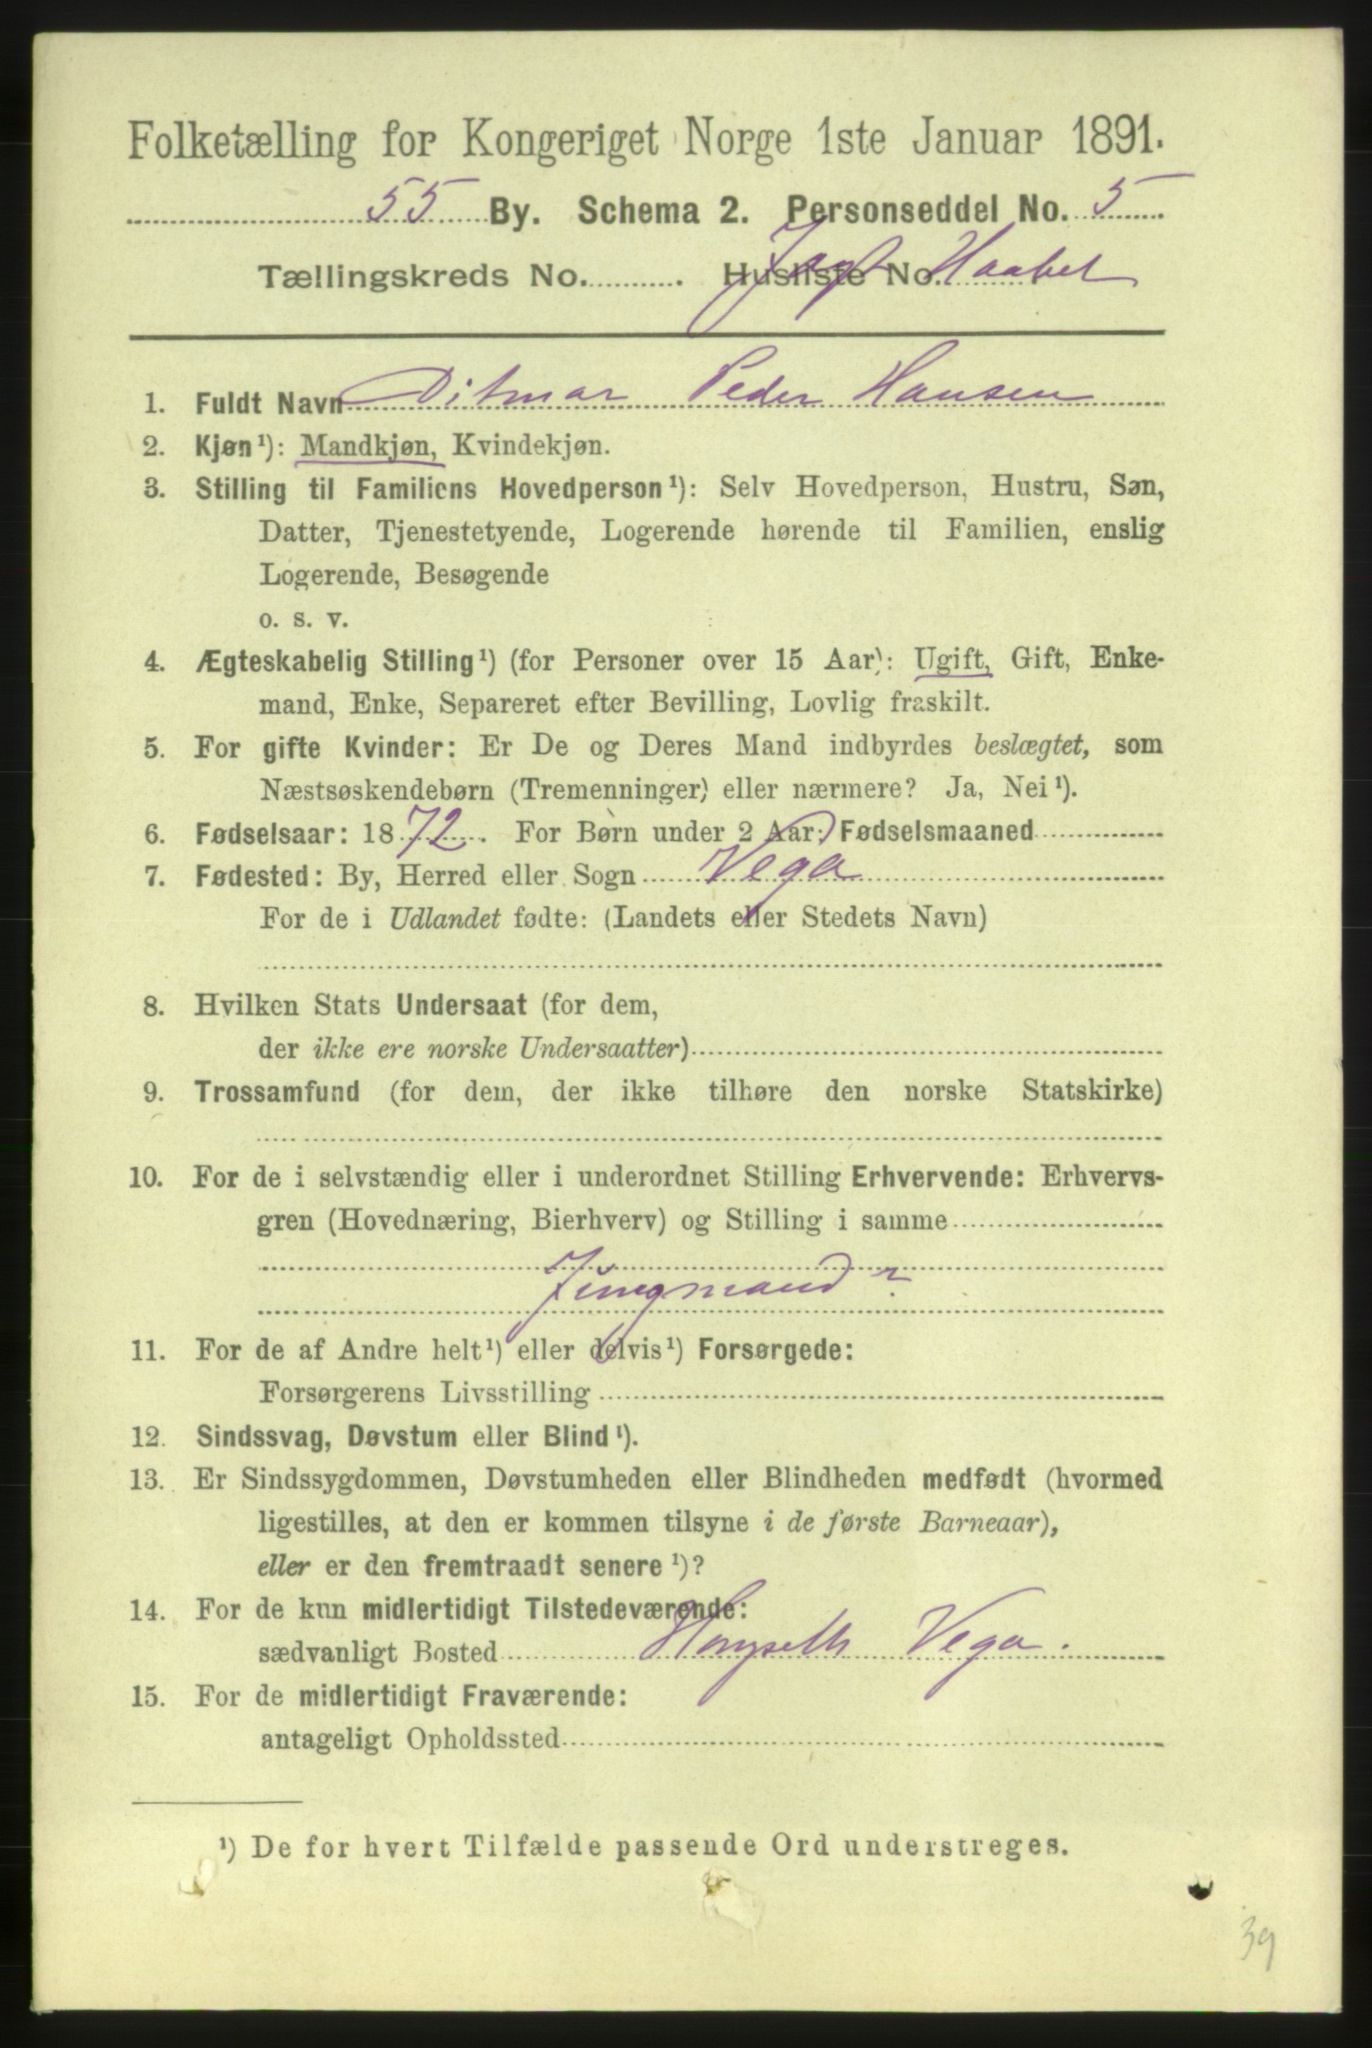 Folketælling for Kongeriget Norge 1ste Januar 1891.
55 By. Schema 2. Personseddel No. 5
Tællingskreds No. Husliste No. Jagt Haabet
1. Fuldt Navn Ditmar Peder Hansen
2. Kjøn¹): Mandkjøn, Kvindekjøn.
3. Stilling til Familiens Hovedperson¹): Selv Hovedperson, Hustru, Søn,
Datter, Tjenestetyende, Logerende hørende til Familien, enslig
Logerende, Besøgende
o. s. v.
4. Ægteskabelig Stilling¹) (for Personer over 15 Aar): Ugift, Gift, Enke-
mand, Enke, Separeret efter Bevilling, Lovlig fraskilt.
5. For gifte Kvinder: Er De og Deres Mand indbyrdes beslægtet, som
Næstsøskendebørn (Tremenninger) eller nærmere? Ja, Nei¹).
6. Fødselsaar: 1872. For Børn under 2 Aar: Fødselsmaaned
7. Fødested: By, Herred eller Sogn Vega
For de i Udlandet fødte: (Landets eller Stedets Navn)
8. Hvilken Stats Undersaat (for dem,
der ikke ere norske Undersaatter)
9. Trossamfund (for dem, der ikke tilhøre den norske Statskirke)
10. For de i selvstændig eller i underordnet Stilling Erhvervende: Erhvervs-
gren (Hovednæring, Bierhverv) og Stilling i samme
Jungmand ?
11. For de af Andre helt¹) eller delvis¹) Forsørgede:
Forsørgerens Livsstilling
12. Sindssvag, Døvstum eller Blind¹).
13. Er Sindssygdommen, Døvstumheden eller Blindheden medfødt (hvormed
ligestilles, at den er kommen tilsyne i de første Barneaar),
eller er den fremtraadt senere¹)?
14. For de kun midlertidigt Tilstedeværende:
sædvanligt Bosted Vega.
15. For de midlertidigt Fraværende:
antageligt Opholdssted
¹) De for hvert Tilfælde passende Ord understreges.
39